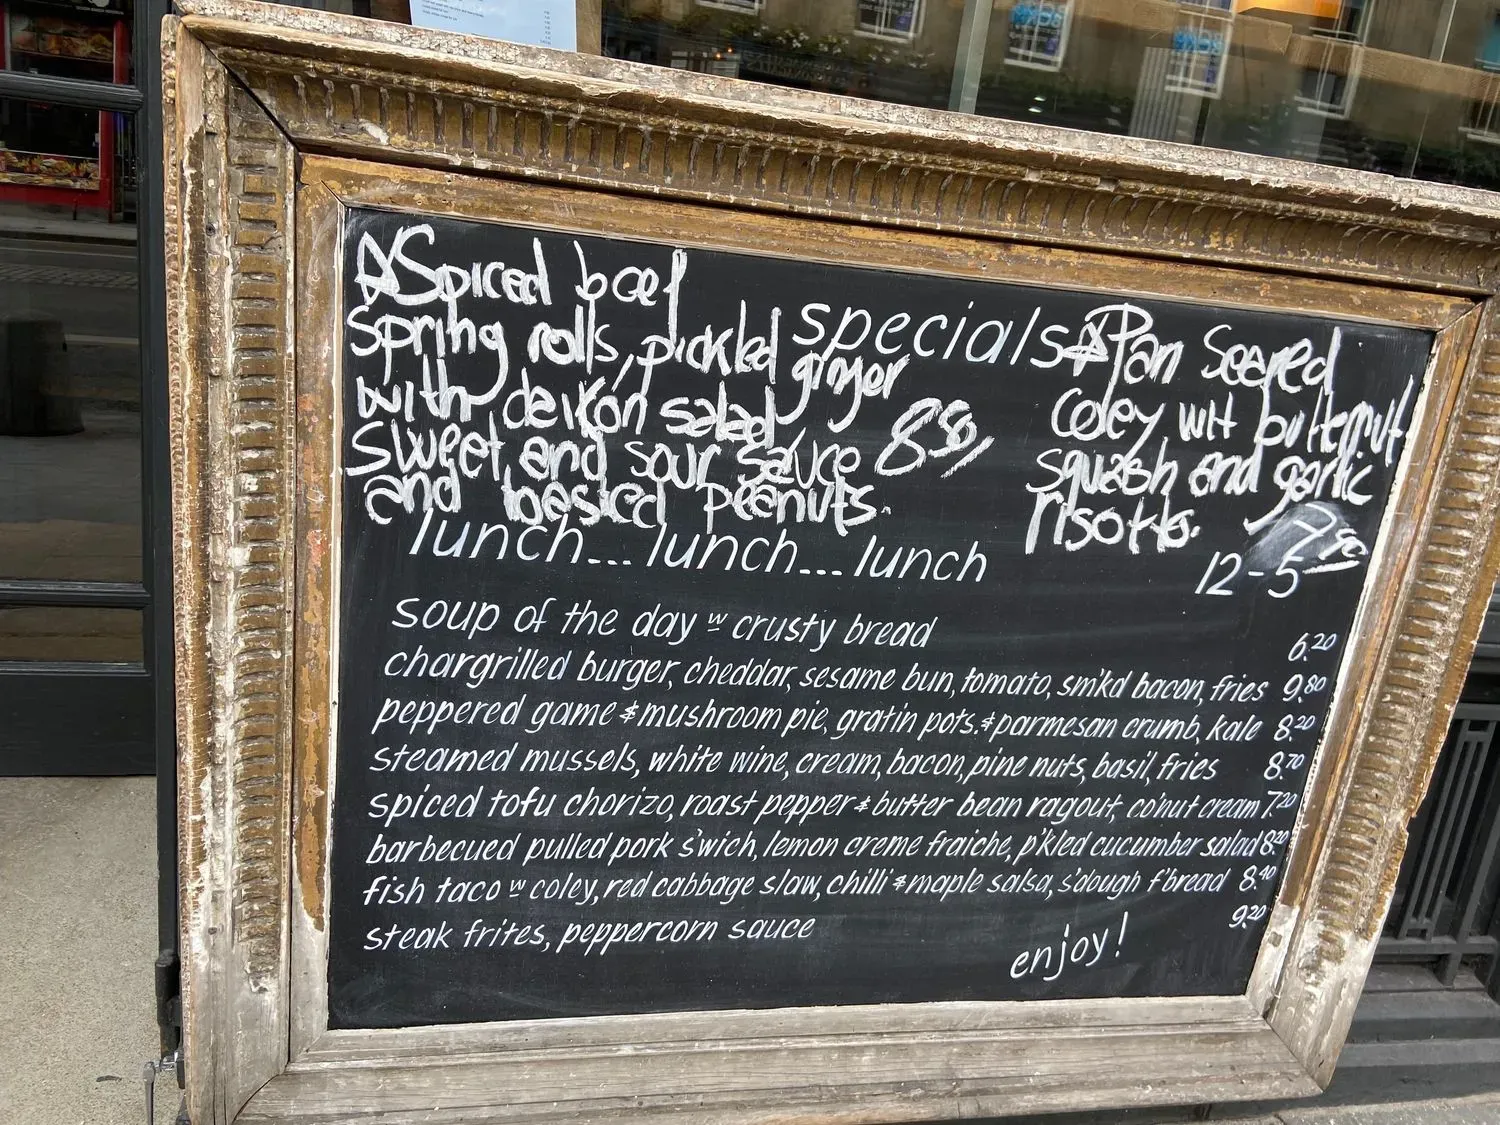 Spiced beef
spring rolls, pickled ginger
with deikon salad
sweet and sour sauce
and basted peanuts.
specials
Pan Seared
coley wit butternut
squash and garlic
risotto.
lunch... lunch... lunch
12-5
soup of the day w crusty bread 6.20
chargrilled burger, cheddar, sesame bun, tomato, sm'kd bacon, fries 9.80
peppered game & mushroom pie, gratin pots. & parmesan crumb, kale 8.20
steamed mussels, white wine, cream, bacon, pine nuts, basil, fries 8.70
spiced tofu chorizo, roast pepper & butter bean ragout, co'nut cream 7.20
barbecued pulled pork s'wich, lemon creme fraiche, p'kled cucumber salad 8.20
fish taco w coley, red cabbage slaw, chilli & maple salsa, s'dough f'bread 8.40
steak frites, peppercorn sauce 9.20
enjoy!